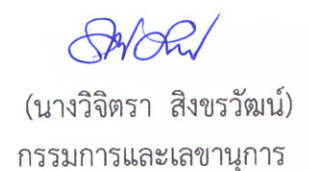 (นางวิจิตรา สิงขรวัฒน์)
กรรมการและเลขานุการ